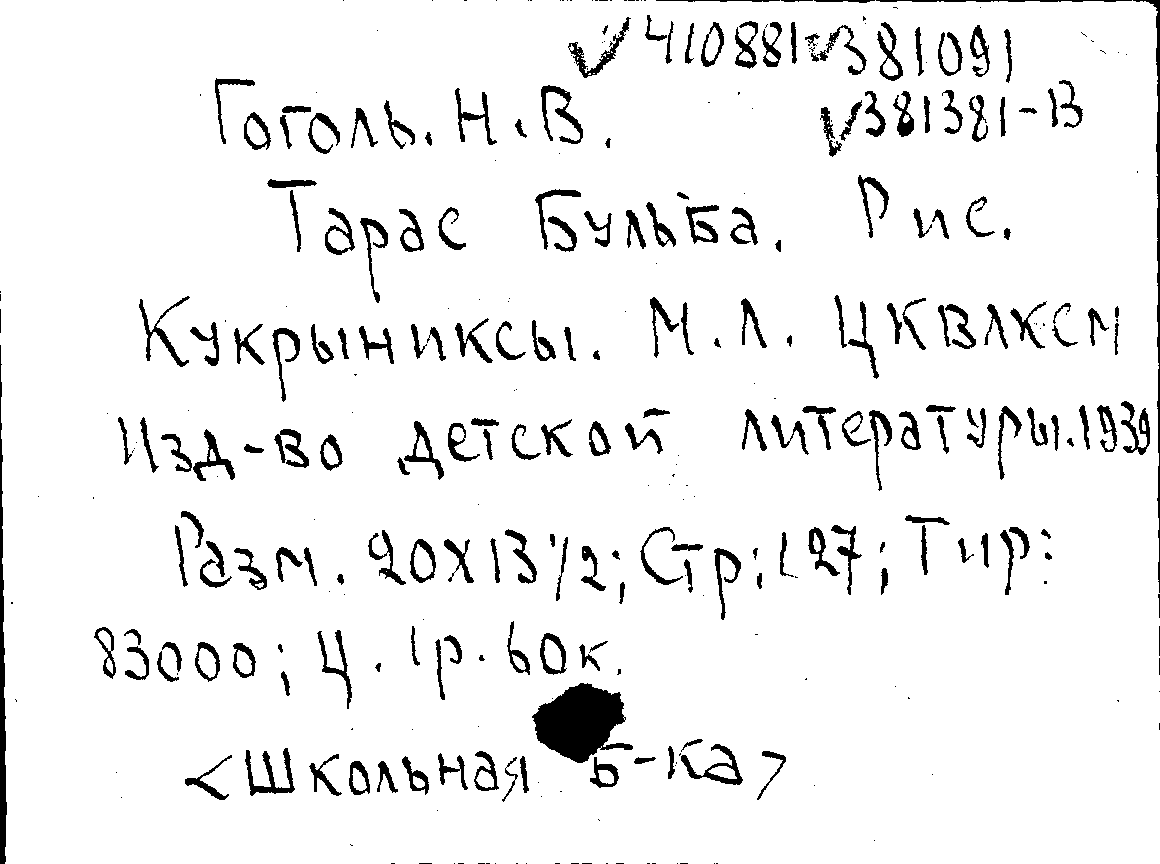 ✓410881 ✓381091
Гоголь. Н. В. ✓381381-В
Тарас Бульба. Рис.
Кукрыниксы. М. Л. ЦКВЛКСМ
Изд-во детской литературы. 1939
Разм. 20X13 1/2; Стр: 127; Тир:
83000; Ц. 1р. 60к.
<Школьная б-ка>